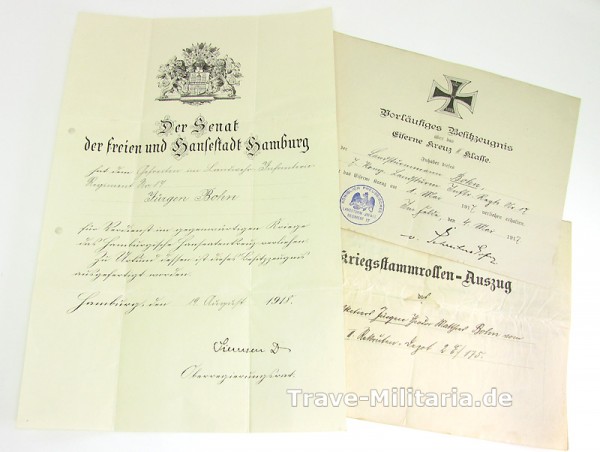 Der Senat
der freien und Hansestadt Hamburg
hat dem Gefreiten im Landwehr-Infanterie
Regiment No
Jürgen Bohn
für Verdienst im gegenwärtigen Kriege
das Hamburgische Hanseatenkreuz verliehen.
Zu Urkund dessen ist dieses Besitzzeugnis
ausgefertigt worden.
Hamburg, den 19 August 1918.
Oberregierungsrat.
Vorläufiges Besitzzeugnis
über das
Eiserne Kreuz II Klasse.
Inhaber dieses
Landsturmmann Bohn
7. Komp. Landsturm Inftr. Regts No 17
hat Eiserne Kreuz am 1. Mai 1917 verliehen erhalten.
4 Mai 1917
Kriegsstammrollen-Auszug
des
Jürgen Bohn vom
Rekruten-Depot
Trave-Militaria.de